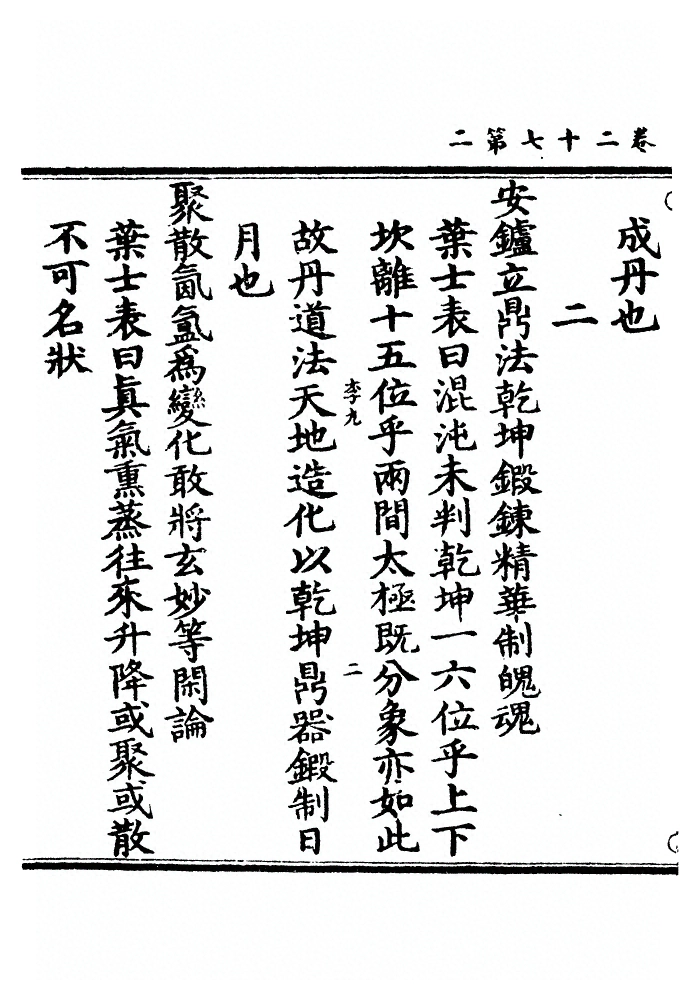 卷二十七第二
成丹也
二
安鑪立鼎法乾坤鍛鍊精華制魄魂
葉士表曰混沌未判乾坤一六位乎上下
坎離十五位乎兩間太極既分象亦如此
李九
二
故丹道法天地造化以乾坤鼎器鍛制日
月也
聚散氤氳爲變化敢將玄妙等閑論
葉士表曰眞氣熏蒸往來升降或聚或散
不可名狀